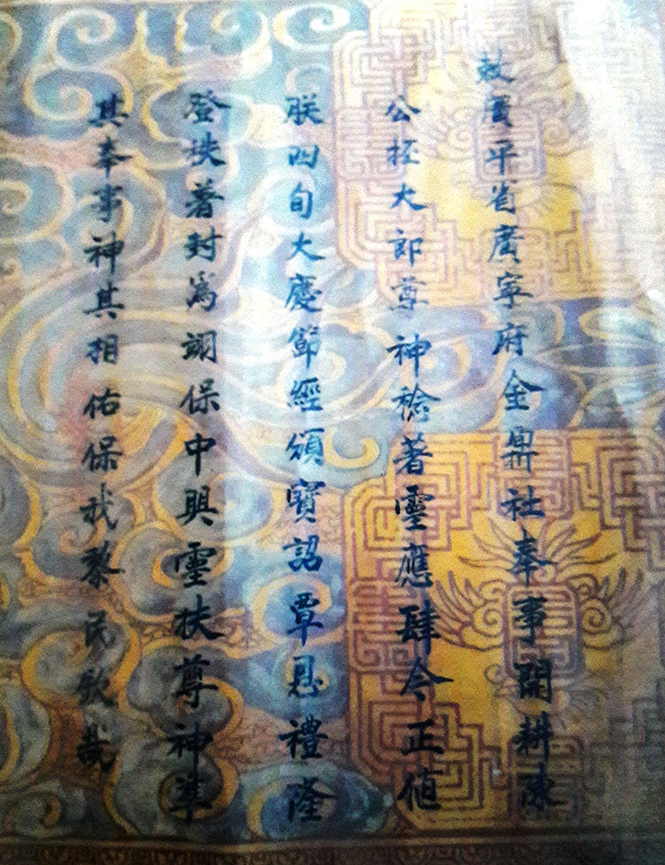 敕廣平省廣寧府金鼎社奉事開耕陳
公挃大郎尊神稔著靈應肆今正值
朕四旬大慶節經頒寶詔覃恩禮隆
登秩着封爲翊保中興靈扶尊神準
其奉事神其相佑保我黎民欽哉